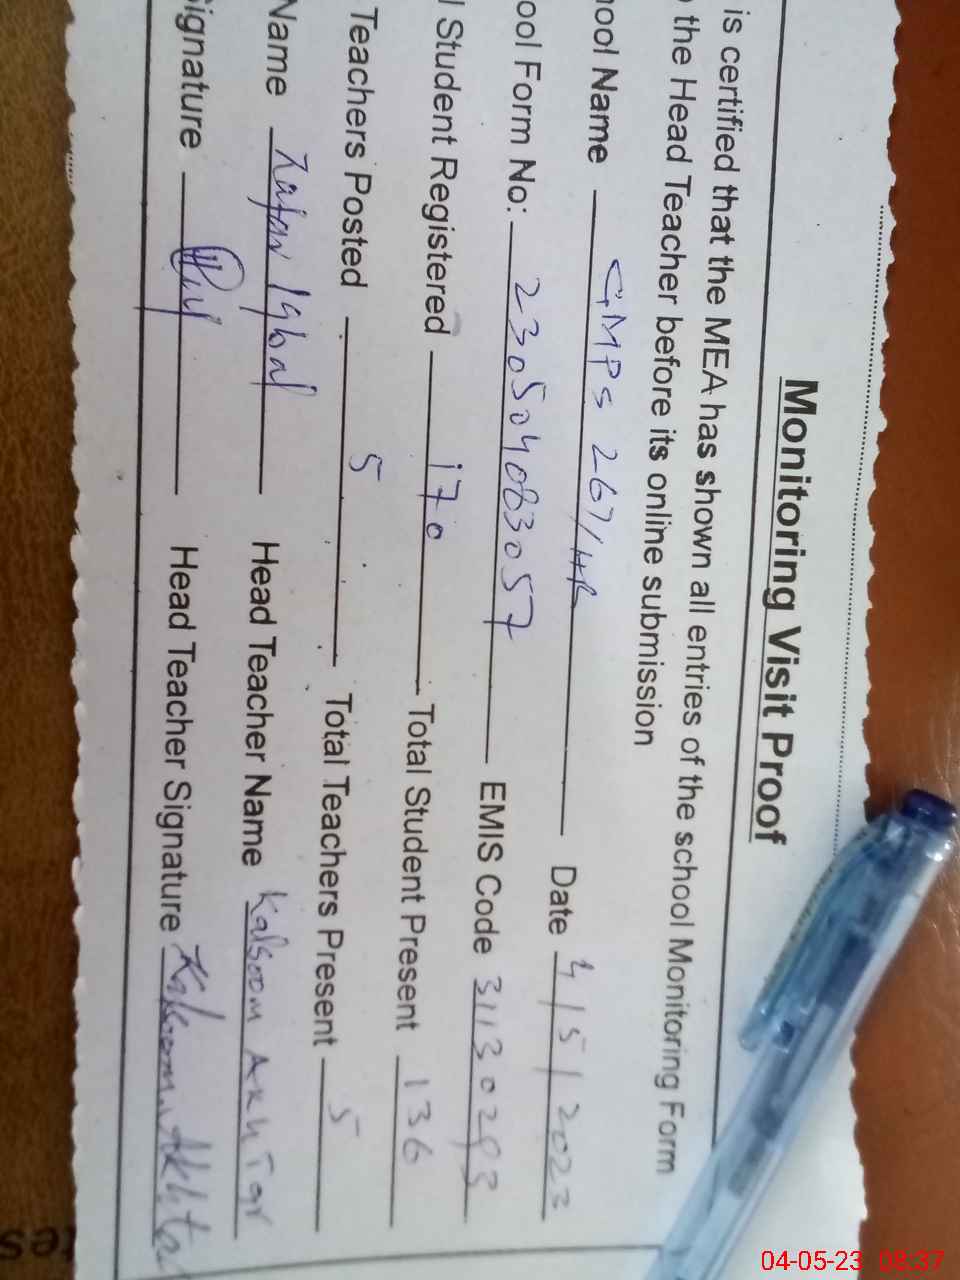 Monitoring Visit Proof
is certified that the MEA has shown all entries of the school Monitoring Form
the Head Teacher before its online submission
ool Name GMPS 267/HR Date 4/5/2023
ool Form No: 230504083057 EMIS Code 31130293
l Student Registered 170 Total Student Present 136
Teachers Posted 5 Total Teachers Present 5
Name Zafar Iqbal Head Teacher Name Kalsoom Akhtar
ignature Head Teacher Signature Kalsoom Akhta
04-05-23 08:37